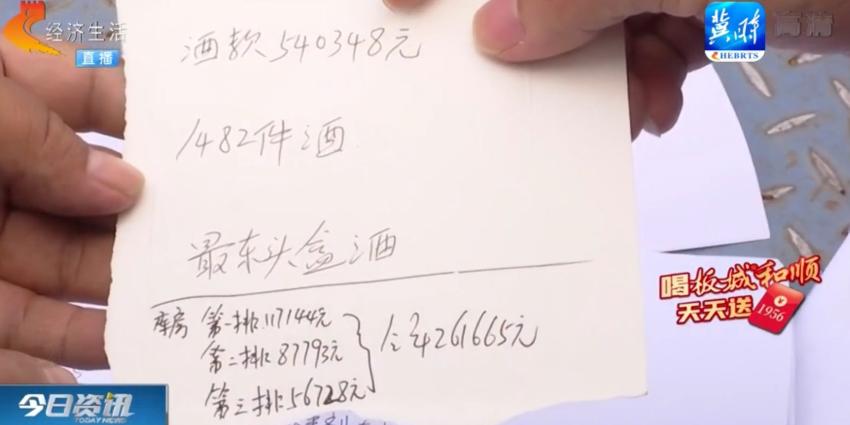 经济生活
直播
冀时
HEBRTS
高清
酒款540348元
1482件酒
最东头盒酒
库房 第一排117144元
第二排87793元
第三排56728元
合计261665元
喝板城和顺
天天送
1956
今日资讯
TODAY NEWS